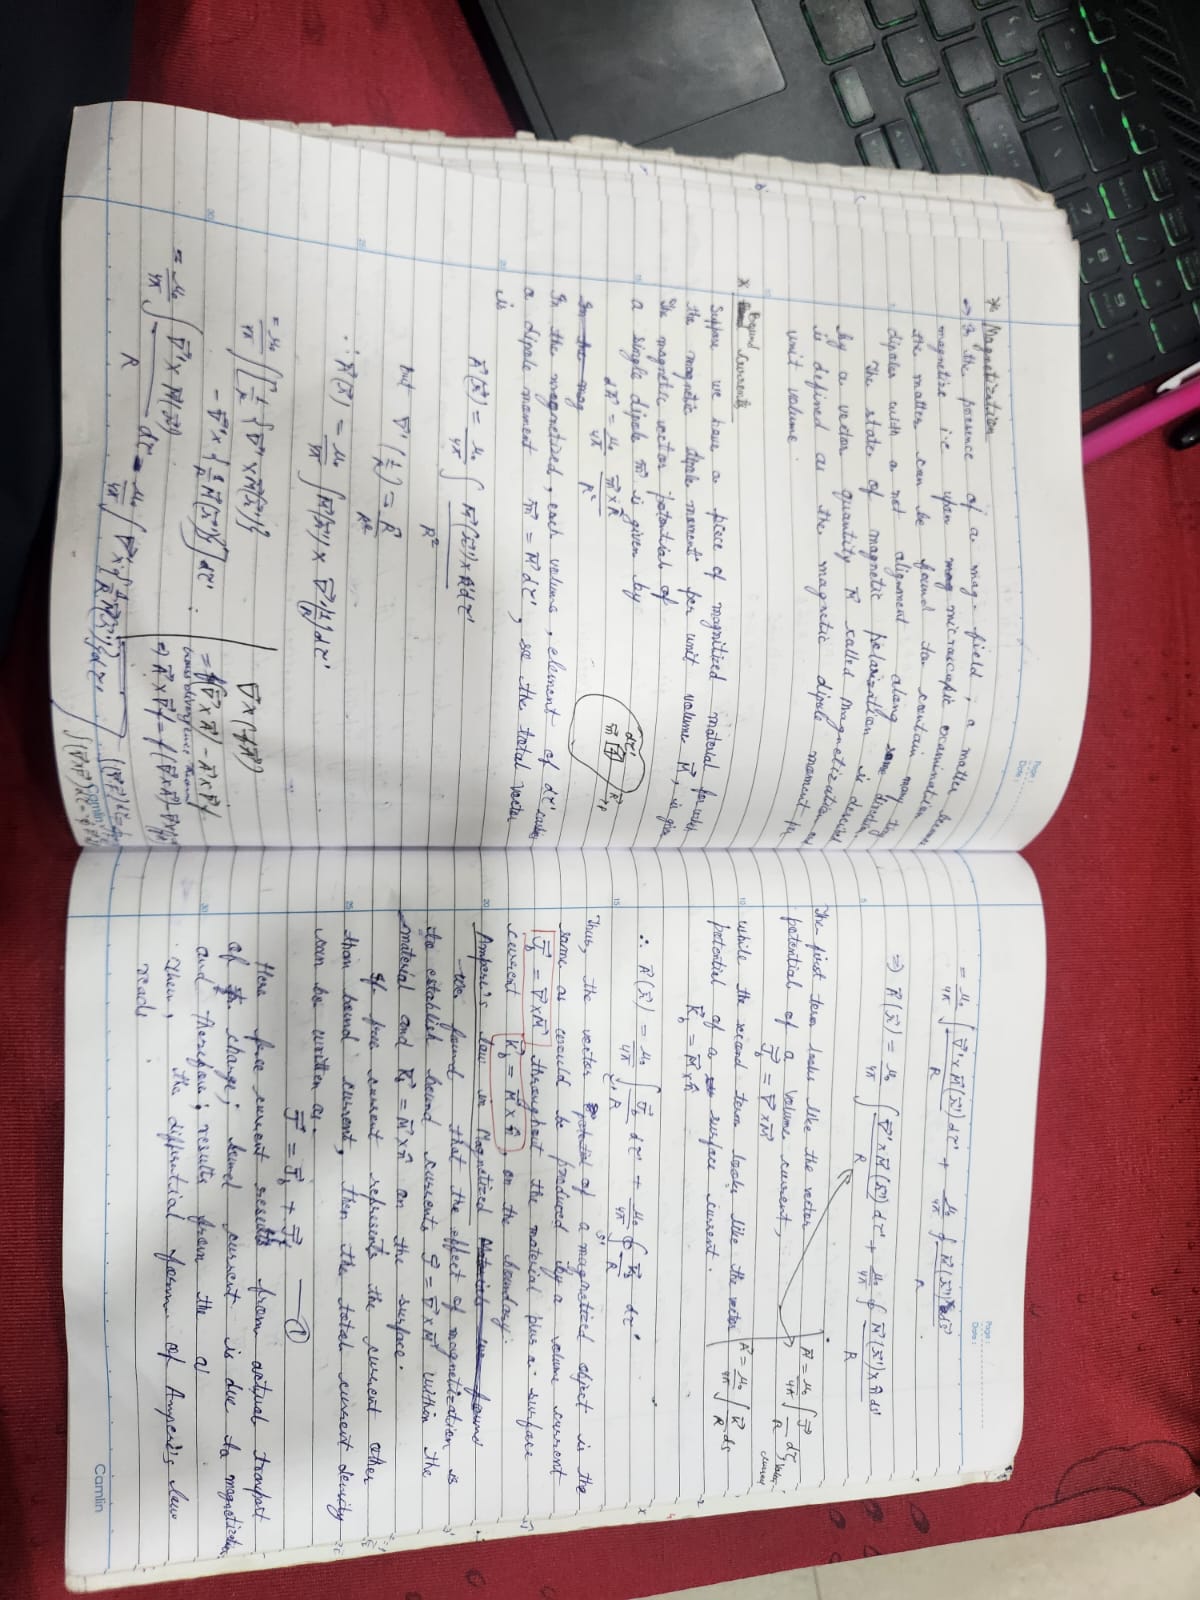 Page:
Date:
* Magnetization
→ In the presence of a mag. field, a matter becomes
magnetize i.e upon mag microscopic examination
the matter can be found to contain many tiny
dipoles with a net alignment along some direction
The state of magnetic polarization is described
by a vector quantity M⃗ called magnetization and
is defined as the magnetic dipole moment per
unit volume.
* Bound Currents
Suppose we have a piece of magnitized material for which
the magnetic dipole moment per unit volume M⃗, is given
The magnetic vector potential of
a single dipole m⃗ is given by
dA⃗ = μ₀/4π m⃗ × R̂/R²
dτ'
m⃗
In the mag
In the magnetized, each volume, element of dτ' carries
a dipole moment m⃗ = M⃗ dτ', so the total vector
is
A⃗(r⃗) = μ₀/4π ∫ M⃗(r⃗') × R̂ dτ'/R²
but ∇⃗'(1/R) = R̂/R²
∴ A⃗(r⃗) = μ₀/4π ∫ M⃗(r⃗') × ∇⃗'(1/R) dτ'
= μ₀/4π ∫ [1/R {∇⃗' × M⃗(r⃗')}
- ∇⃗' × {1/R M⃗(r⃗')}] dτ'
∇⃗ × (fA⃗)
= f(∇⃗ × A⃗) - A⃗ × ∇⃗f
using divergence theorem
⇒ A⃗ × ∇⃗f = f(∇⃗ × A⃗) - ∇⃗ × (fA⃗)
= μ₀/4π ∫ ∇⃗' × M⃗(r⃗')/R dτ' - μ₀/4π ∫ ∇⃗' × {1/R M⃗(r⃗')} dτ'
Page:
Date:
= μ₀/4π ∫ [∇⃗' × M⃗(r⃗')]/R dτ' + μ₀/4π ∮ M⃗(r⃗') × ds⃗'/R
⇒ A⃗(r⃗) = μ₀/4π ∫ [∇⃗' × M⃗(r⃗')]/R dτ' + μ₀/4π ∮ M⃗(r⃗') × n̂ ds'/R
The first term looks like the vector
potential of a volume current,
J⃗b = ∇⃗ × M⃗
A⃗ = μ₀/4π ∫ J⃗/R dτ, volume current
while the second term looks like the vector
potential of a surface current.
K⃗b = M⃗ × n̂
A⃗ = μ₀/4π ∫ K⃗/R ds
∴ A⃗(r⃗) = μ₀/4π ∫ J⃗b/R dτ' + μ₀/4π ∮ K⃗b/R dτ'
Thus, the vector potential of a magnetized object is the
same as would be produced by a volume current
J⃗b = ∇⃗ × M⃗ throughout the material plus a surface
current K⃗b = M⃗ × n̂, on the boundary.
Ampere's law in Magnetized Materials we found
We found that the effect of magnetization is
to establish bound currents J⃗ = ∇⃗ × M⃗ within the
material and K⃗b = M⃗ × n̂ on the surface.
If free current represents the current other
than bound current, then the total current density
can be written as.
J⃗ = J⃗b + J⃗f — ①
Here free current results from actual transport
of charge; bound current is due to magnetization
and therefore, results from the a
Then, the diffential form of Ampere's law
reads
Camlin